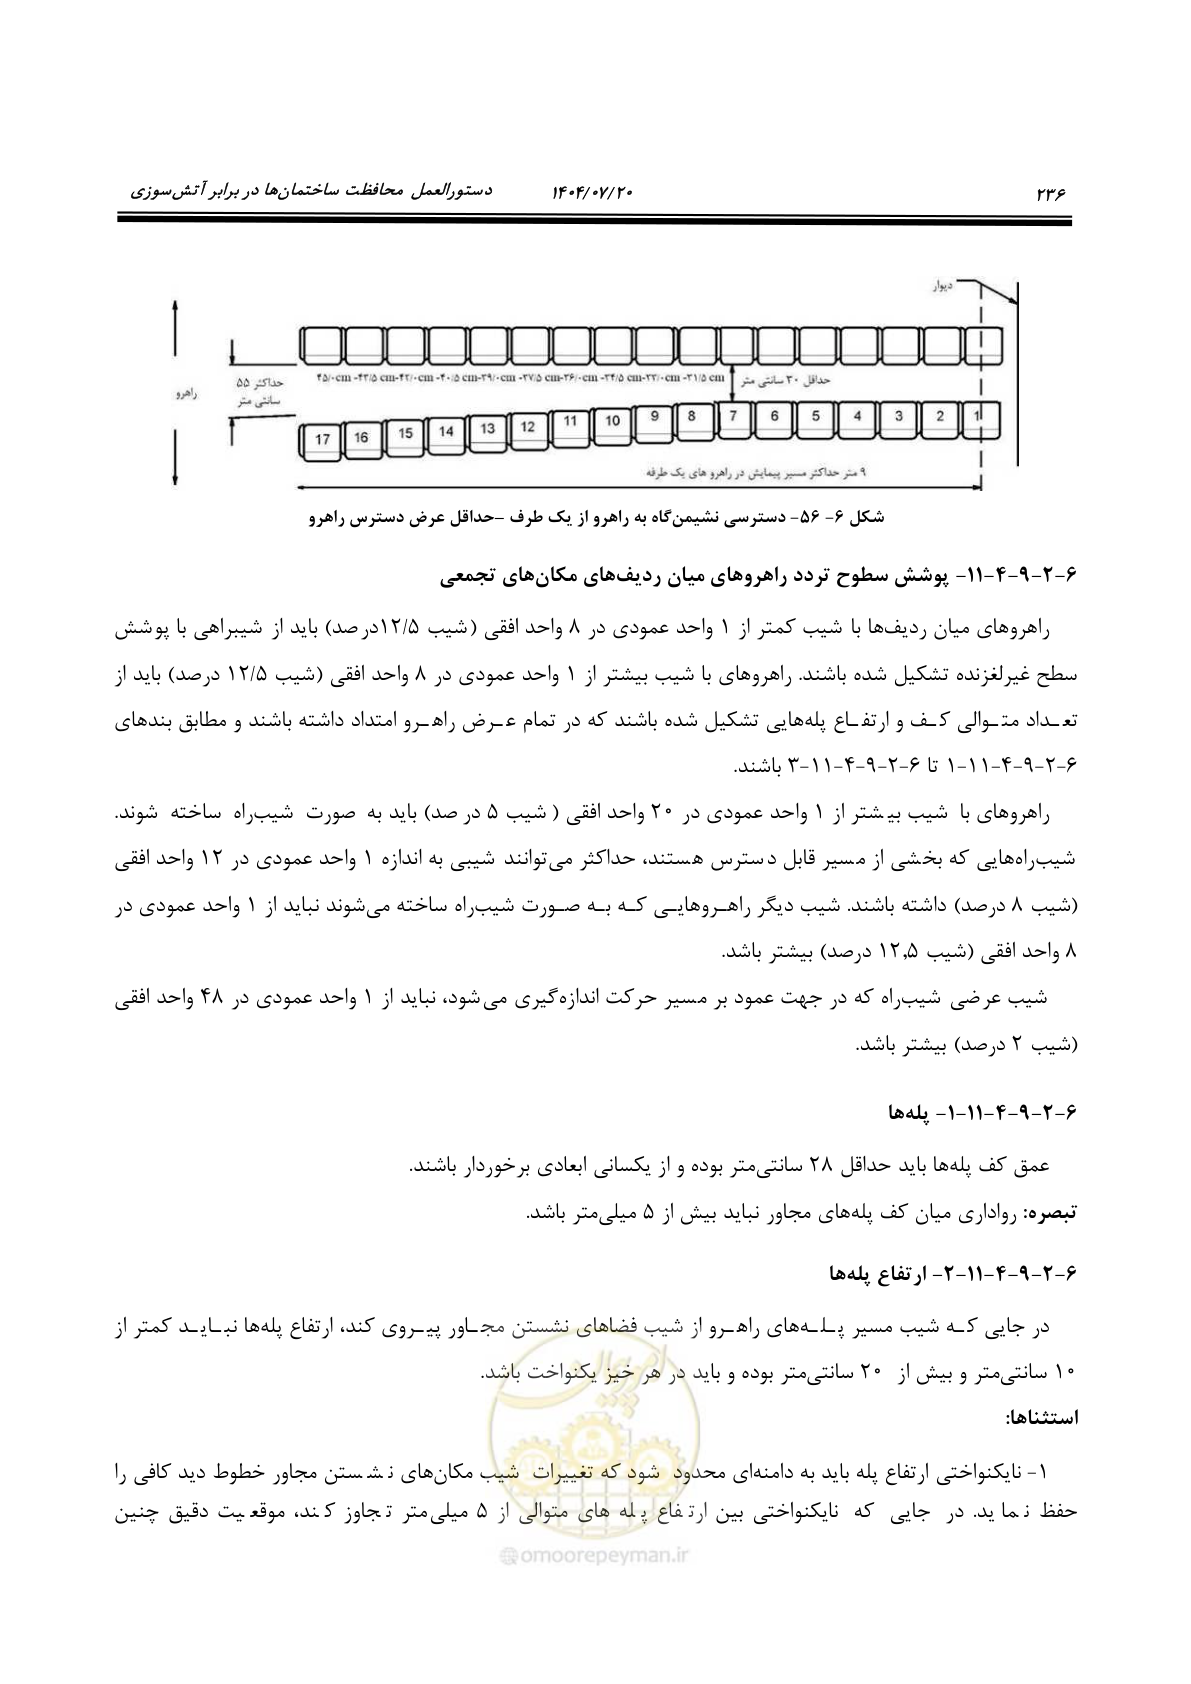 ۲۳۶ ۱۴۰۴/۰۷/۲۰ دستورالعمل محافظت ساختمان‌ها در برابر آتش‌سوزی
دیوار
حداقل ۳۰ سانتی متر
۴۵/۰cm -۴۳/۵ cm-۴۲/۰cm -۴۰/۵ cm-۳۹/۰cm -۳۷/۵ cm-۳۶/۰cm -۳۴/۵ cm-۳۳/۰cm -۳۱/۵ cm
حداکثر ۵۵
سانتی متر
راهرو
17 16 15 14 13 12 11 10 9 8 7 6 5 4 3 2 1
۹ متر حداکثر مسیر پیمایش در راهرو های یک طرفه
شکل ۶- ۵۶- دسترسی نشیمن‌گاه به راهرو از یک طرف –حداقل عرض دسترس راهرو
۶-۲-۹-۴-۱۱- پوشش سطوح تردد راهروهای میان ردیف‌های مکان‌های تجمعی
راهروهای میان ردیف‌ها با شیب کمتر از ۱ واحد عمودی در ۸ واحد افقی (شیب ۱۲/۵درصد) باید از شیبراهی با پوشش
سطح غیرلغزنده تشکیل شده باشند. راهروهای با شیب بیشتر از ۱ واحد عمودی در ۸ واحد افقی (شیب ۱۲/۵ درصد) باید از
تعـداد متـوالی کـف و ارتفـاع پله‌هایی تشکیل شده باشند که در تمام عـرض راهـرو امتداد داشته باشند و مطابق بندهای
۶-۲-۹-۴-۱۱-۱ تا ۶-۲-۹-۴-۱۱-۳ باشند.
راهروهای با شیب بیشتر از ۱ واحد عمودی در ۲۰ واحد افقی ( شیب ۵ در صد) باید به صورت شیب‌راه ساخته شوند.
شیب‌راه‌هایی که بخشی از مسیر قابل دسترس هستند، حداکثر می‌توانند شیبی به اندازه ۱ واحد عمودی در ۱۲ واحد افقی
(شیب ۸ درصد) داشته باشند. شیب دیگر راهـروهایـی کـه بـه صـورت شیب‌راه ساخته می‌شوند نباید از ۱ واحد عمودی در
۸ واحد افقی (شیب ۱۲٫۵ درصد) بیشتر باشد.
شیب عرضی شیب‌راه که در جهت عمود بر مسیر حرکت اندازه‌گیری می‌شود، نباید از ۱ واحد عمودی در ۴۸ واحد افقی
(شیب ۲ درصد) بیشتر باشد.
۶-۲-۹-۴-۱۱-۱- پله‌ها
عمق کف پله‌ها باید حداقل ۲۸ سانتی‌متر بوده و از یکسانی ابعادی برخوردار باشند.
تبصره: رواداری میان کف پله‌های مجاور نباید بیش از ۵ میلی‌متر باشد.
۶-۲-۹-۴-۱۱-۲- ارتفاع پله‌ها
در جایی کـه شیب مسیر پـلـه‌های راهـرو از شیب فضاهای نشستن مجـاور پیـروی کند، ارتفاع پله‌ها نبـایـد کمتر از
۱۰ سانتی‌متر و بیش از ۲۰ سانتی‌متر بوده و باید در هر خیز یکنواخت باشد.
استثناها:
۱- نایکنواختی ارتفاع پله باید به دامنه‌ای محدود شود که تغییرات شیب مکان‌های نشستن مجاور خطوط دید کافی را
حفظ نماید. در جایی که نایکنواختی بین ارتفاع پله های متوالی از ۵ میلی‌متر تجاوز کند، موقعیت دقیق چنین
امور پیمان
@omoorepeyman.ir